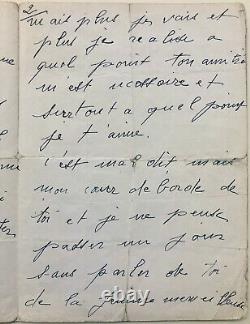 2/
mais plus je vais et
plus je realise a
quel point ton amitié
m'est necessaire et
surtout a quel point
je t'aime.
c'est mal dit mais
mon cœur deborde de
toi et je ne peux
passer un jour
sans parler de toi
de la
© sell-tips.com